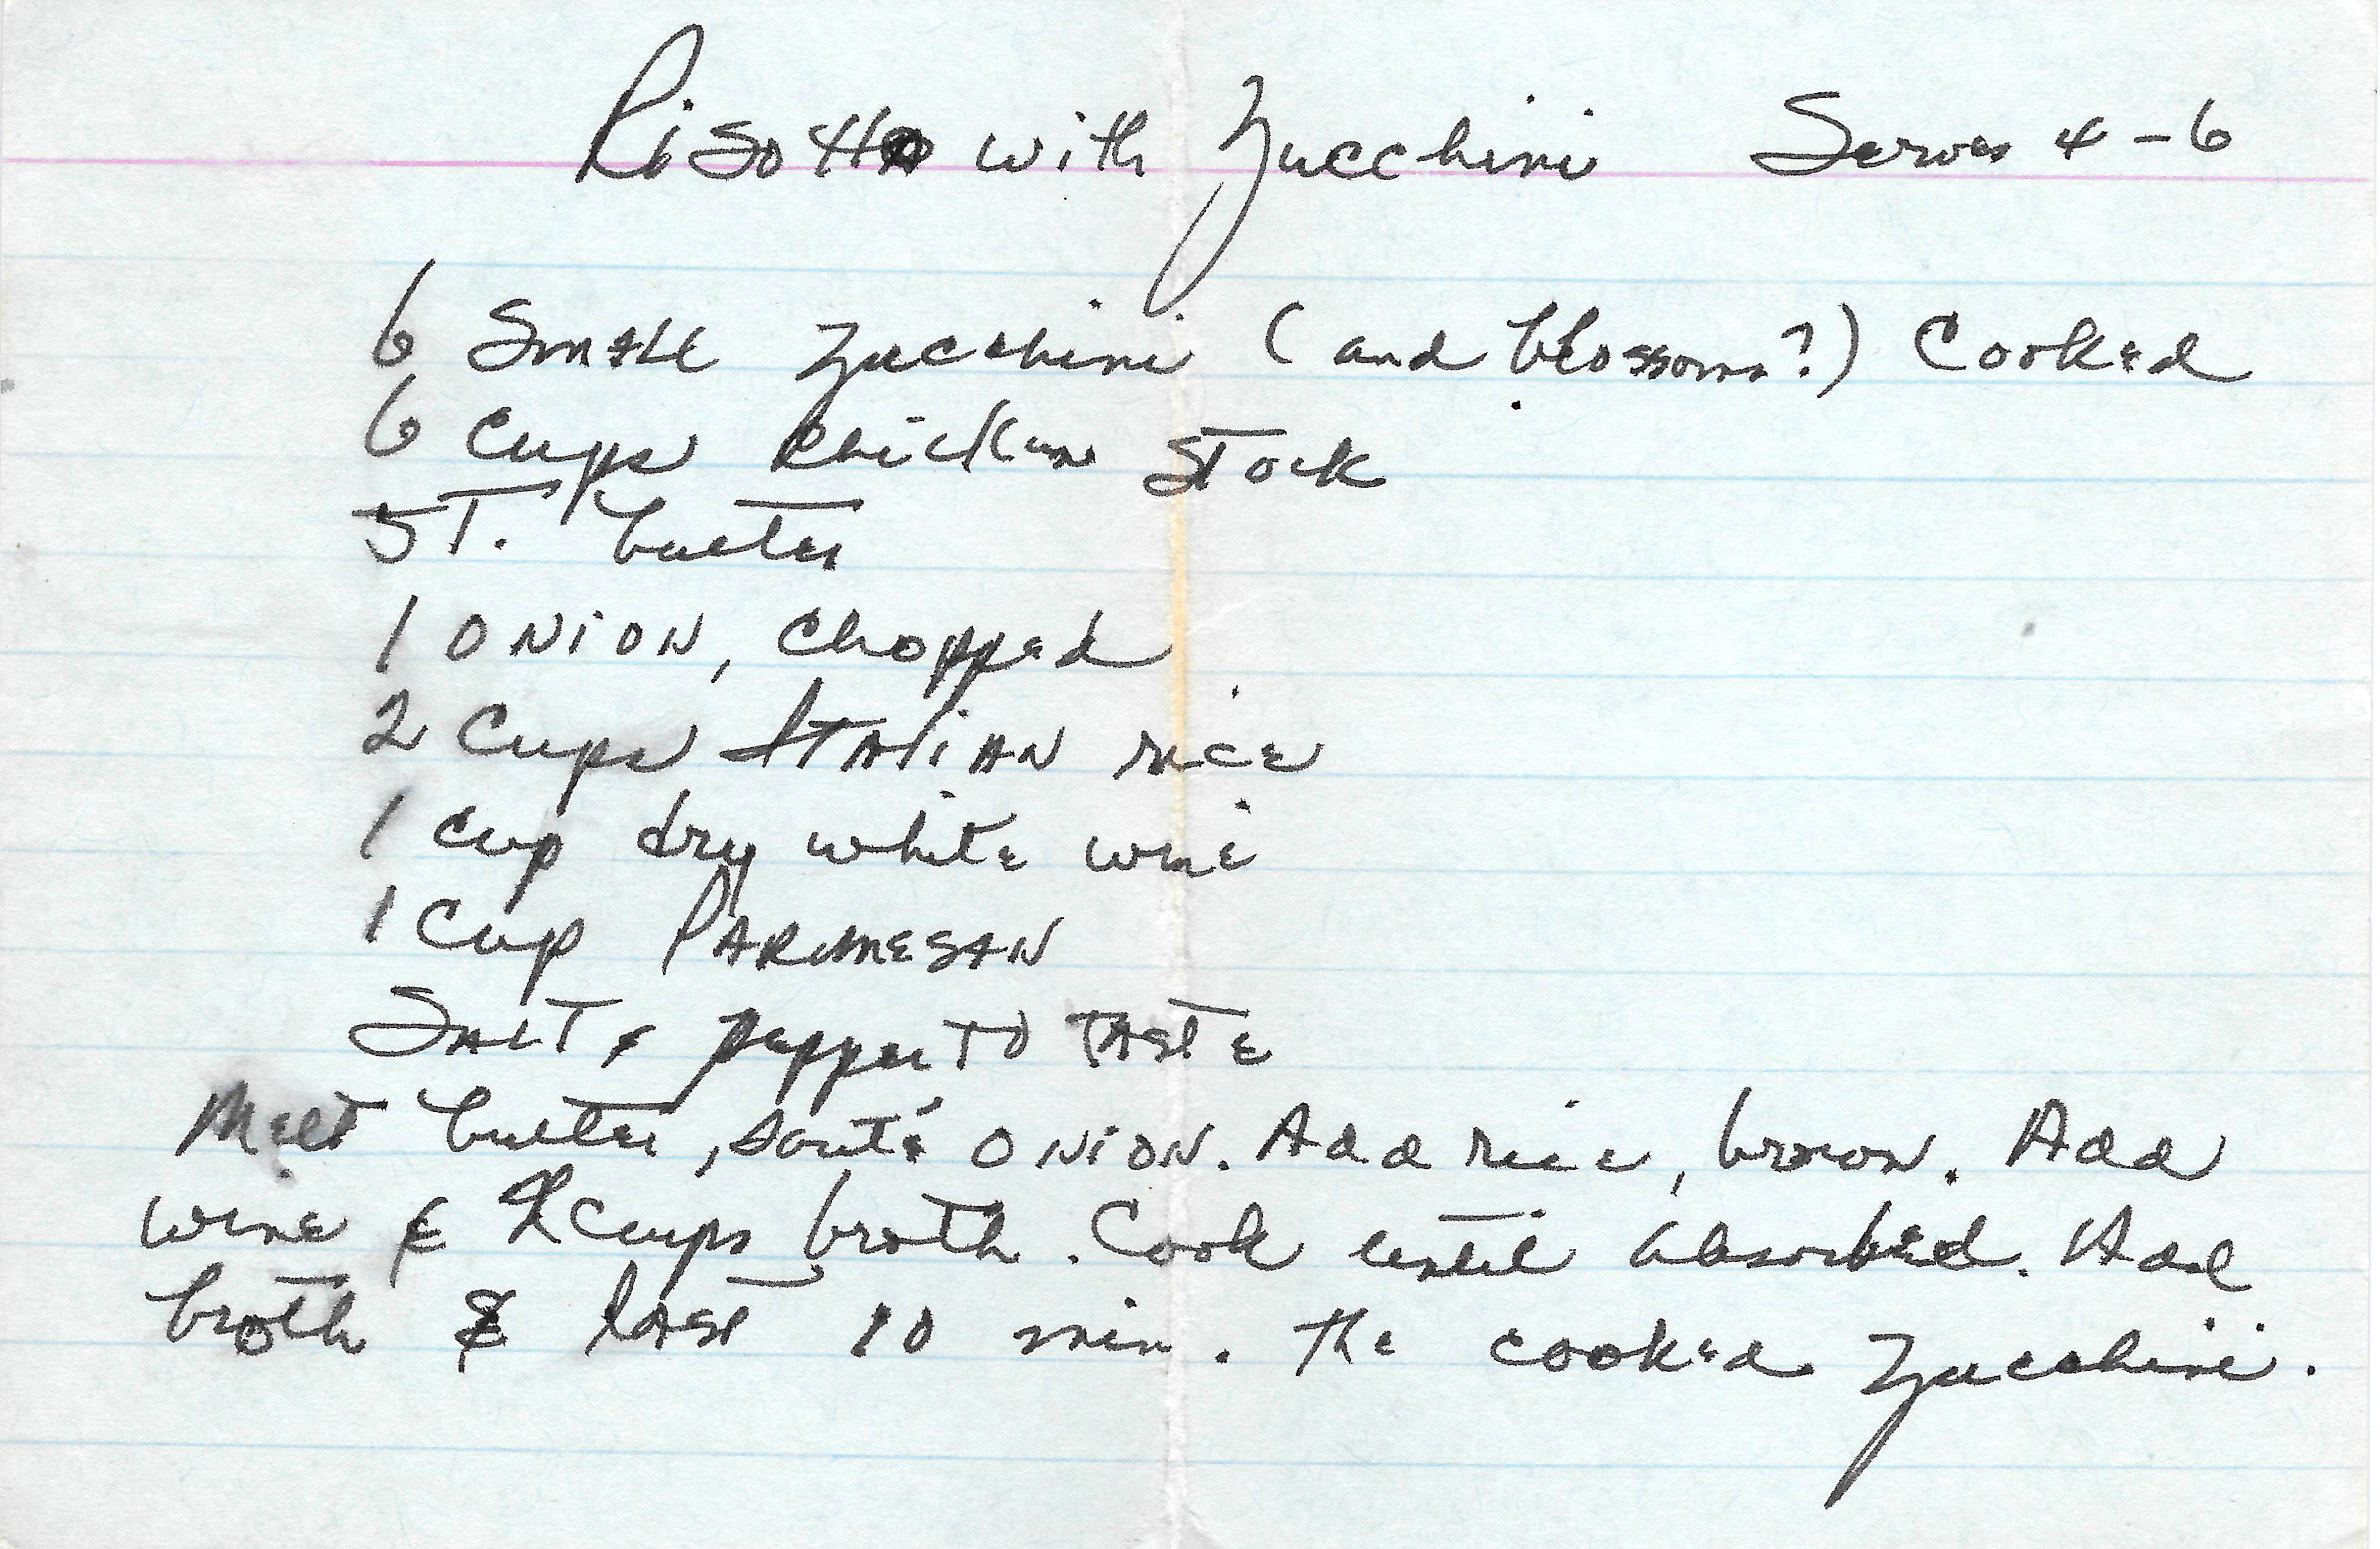 Risotto with Zucchini Serves 4-6
6 Small Zucchini (and blossoms?) Cooked
6 Cups chicken stock
5 T. butter
1 ONiON, chopped
2 Cups ItAliAN rice
1 cup dry white wine
1 Cup PARMESAN
SALT & pepper TO TASTE
Melt butter, sauté ONiON. Add rice, brown. Add
wine & 2 Cups broth. Cook until absorbed. Add
broth & last 10 min. the cooked Zucchini.